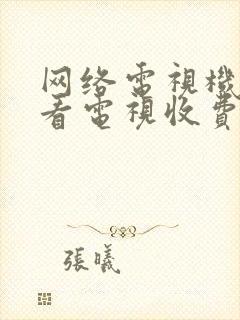 网络電視機
看電視收費
張曦